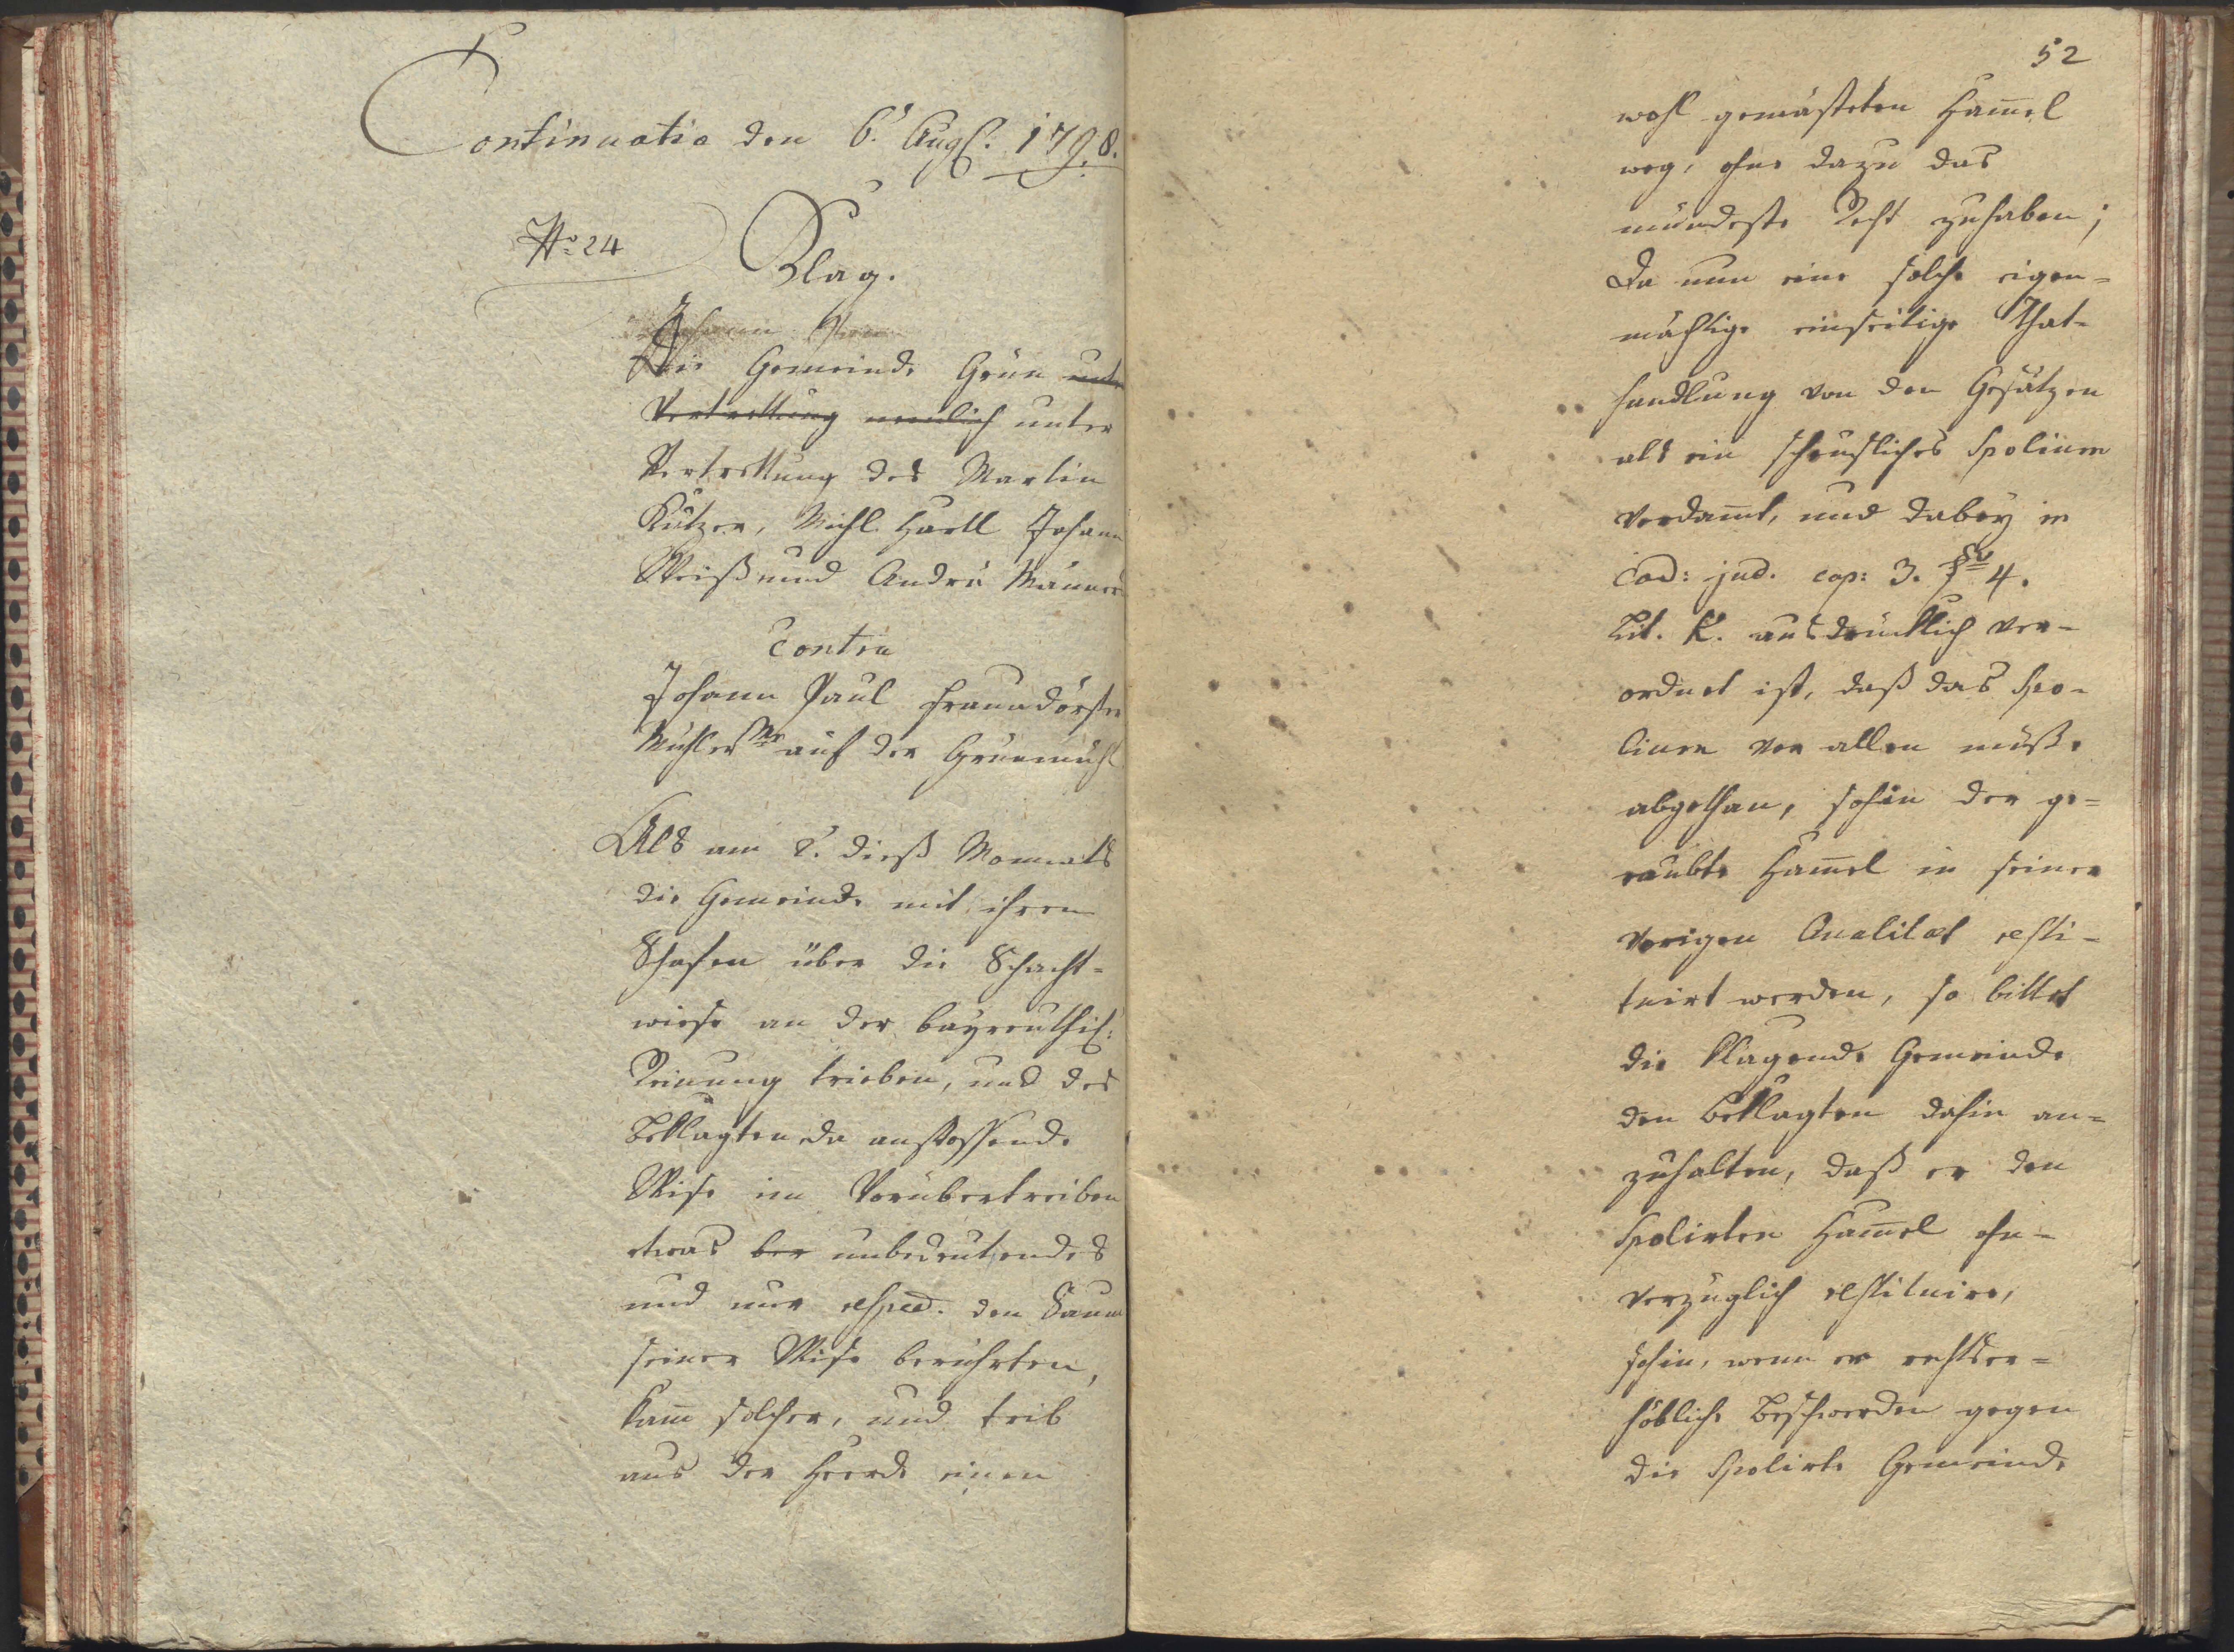 Continuatio den 6.t Augs: 1798.
No: 24
Klag.
Johann
Die Gemeinde Grün unter
Vertrettung nemlich unter
Vertrettung des Martin
Kützer, Michl Härtl Johann
Weiß und Andrä Männer
Contra
Johann Paul Fraundörfer
Mühler Mr auf der Grünmühl
Als am 2.t dieß Monnats
die Gemeinde mit ihren
Schafen über die Schacht-
wiese an der bayreuthis:
Reinung trieben, und des
Beklagten da anstossende
Wise im Vorübertreiben
etwas ber unbedeutendes
und nur respect. den Saum
seiner Wise berührten,
kam̅ solcher, und trib
aus der Heerde einen
52
wohl gemästeten Ham̅el
weg, ohne dazu das
mündeste Recht zuhaben;
Da nun eine solche eigen-
mächtige einseitige That-
handlung von den Gesätzen
als ein scheusliches Spolium
verdam̅t, und dabey in
Cod: jud. cap: 3. §vo 4.
Lit. K. ausdrücklich ver-
ordnet ist, daß das Spo-
lium vor allen müße
abgethan, sohin der ge-
raubte Ham̅el in seiner
vorigen Qualitæt resti-
tuirt werden, so bittet
die klagende Gemeinde
den Beklagten dahin an-
zuhalten, daß er den
Spolirten Ham̅el ohn-
verzüglich restituire,
sohin, wenn er rechtser-
höbliche Beschwerden gegen
die Spolirte Gemeinde